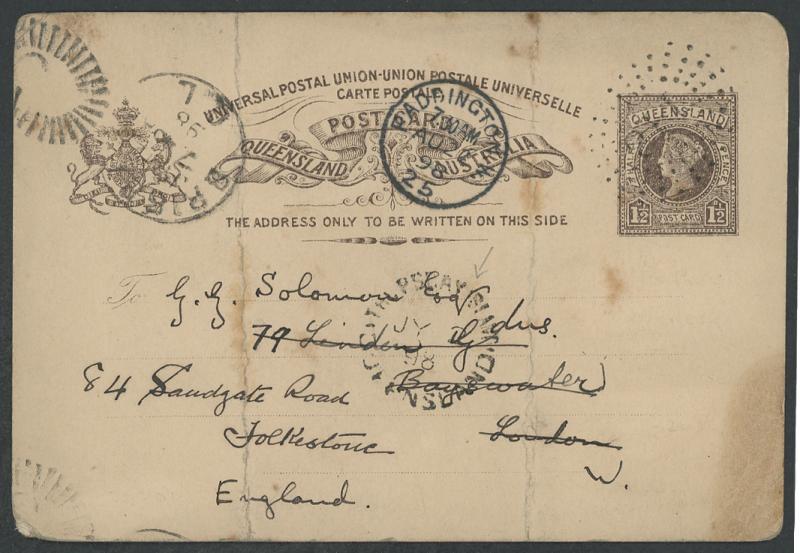 UNIVERSAL POSTAL UNION-UNION POSTALE UNIVERSELLE
CARTE POSTALE
POST CARD
QUEENSLAND AUSTRALIA
THE ADDRESS ONLY TO BE WRITTEN ON THIS SIDE
QUEENSLAND
PENCE
1½ POST CARD 1½
PADDINGTON
7.00 AM
AU
98
25
JY
To G. G. Solomon Esq
79 Linden Gdns.
84 Sandgate Road Bayswater
Folkestone London
W.
England.